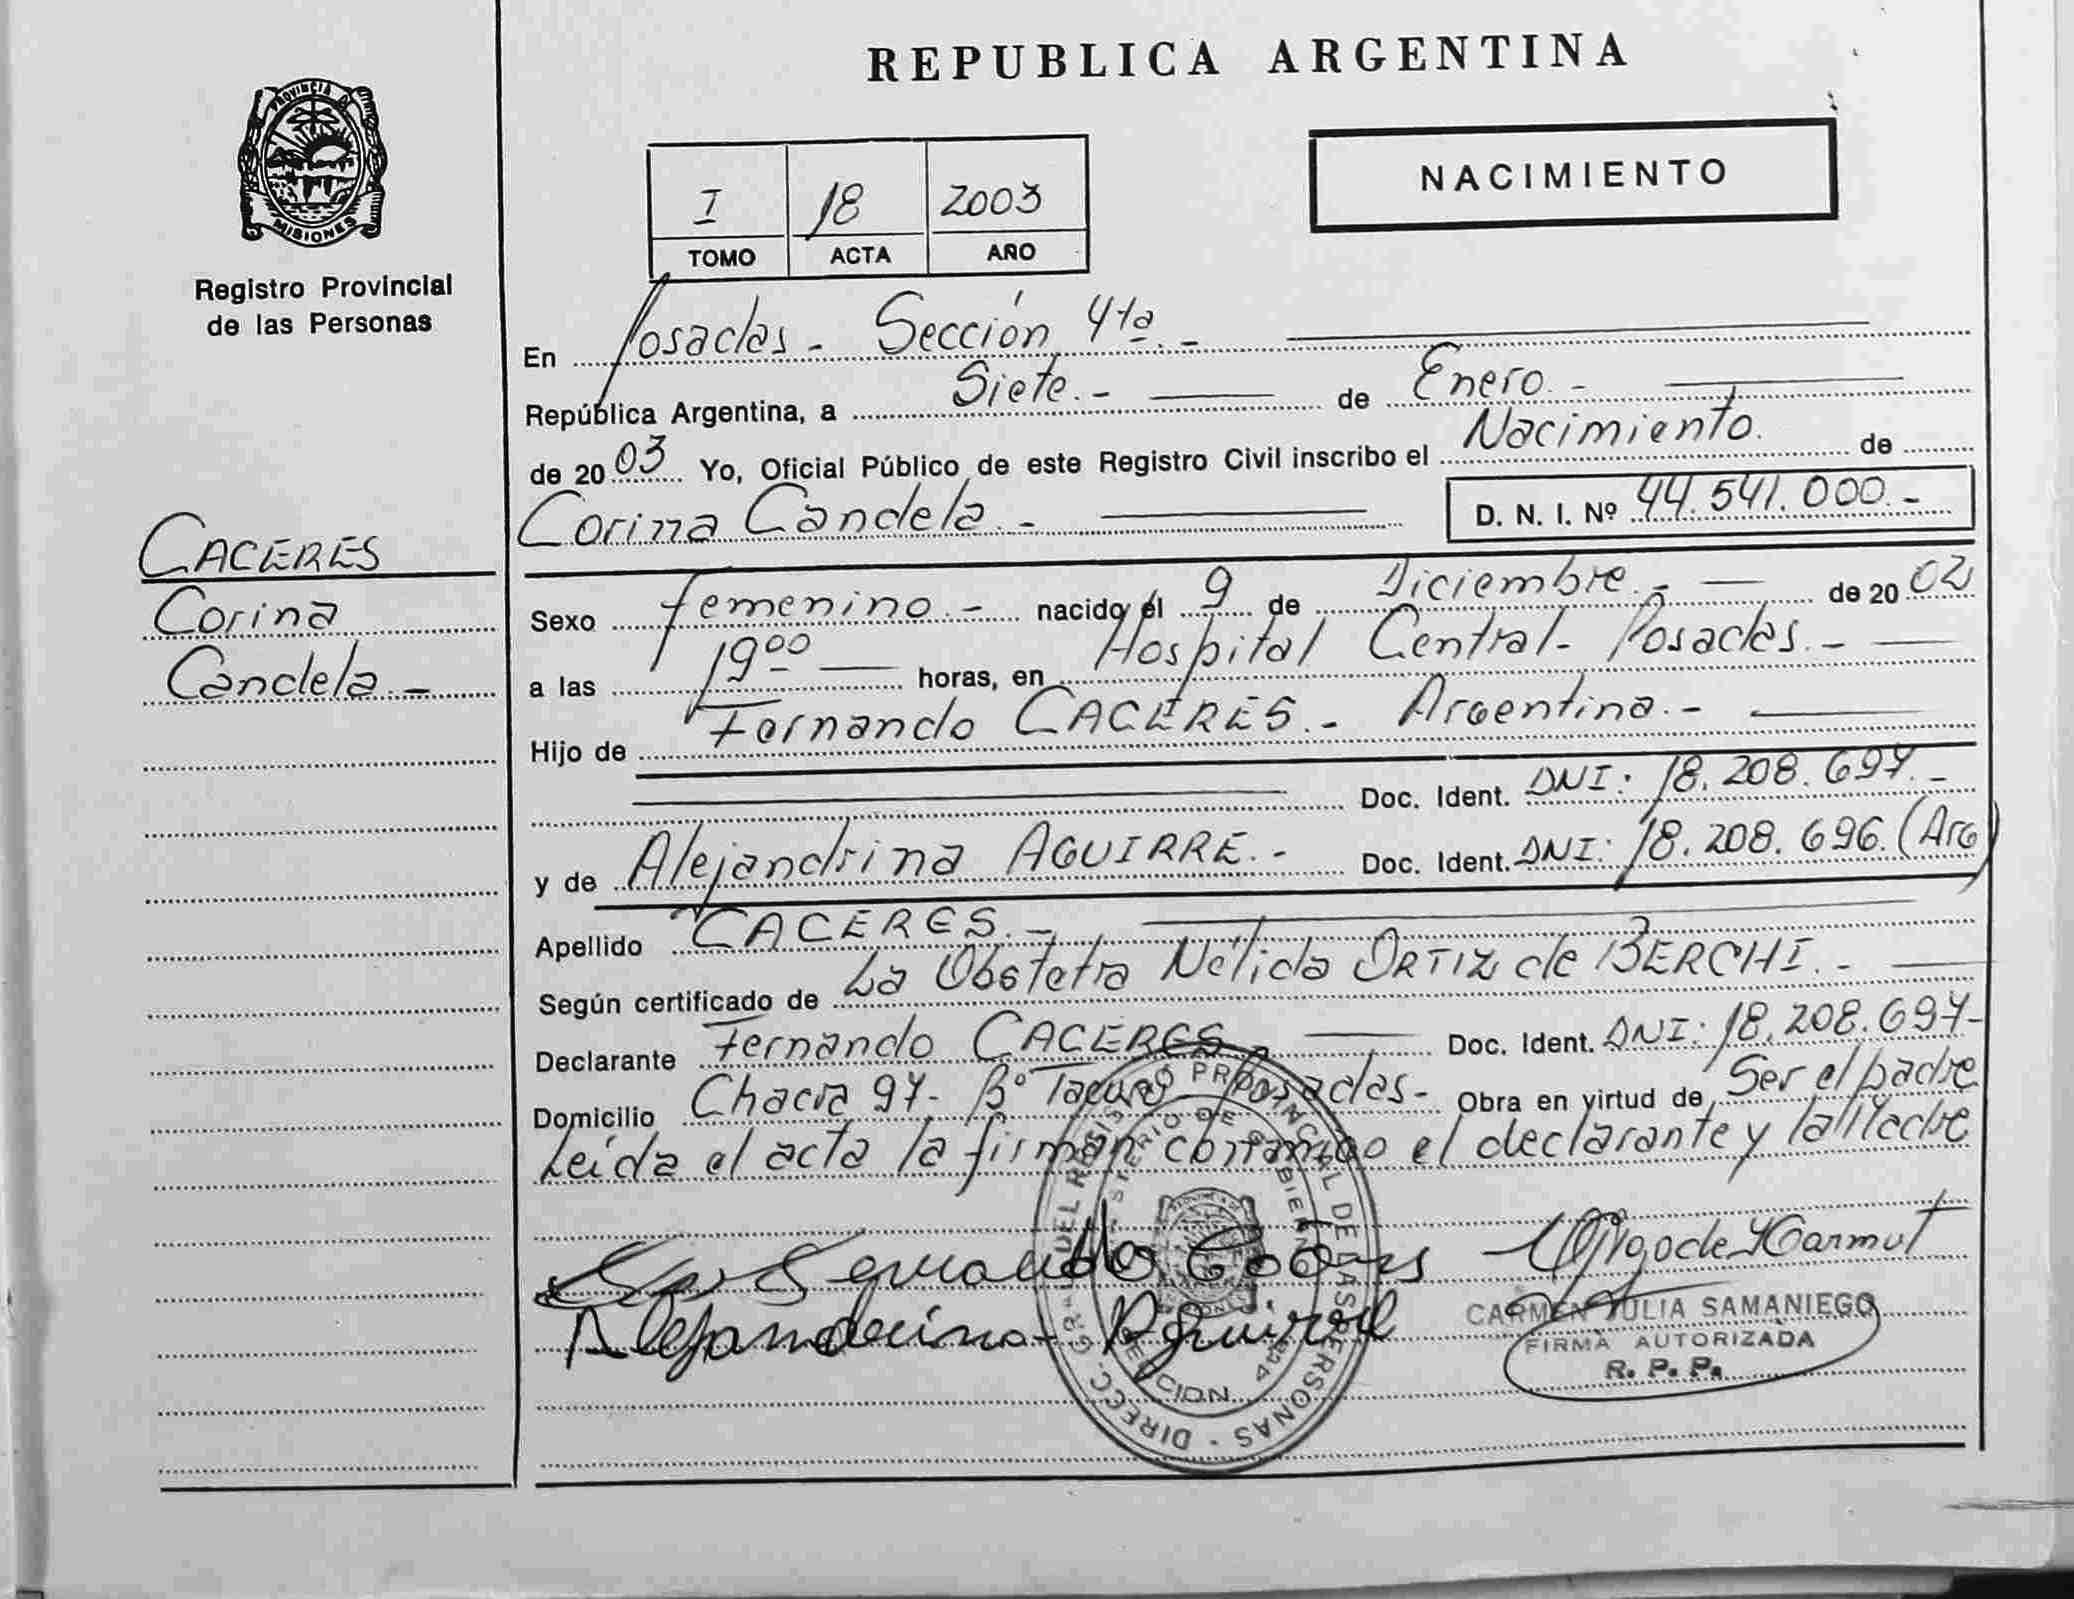 REPUBLICA ARGENTINA
PROVINCIA DE
MISIONES
Registro Provincial
de las Personas
NACIMIENTO
I 18 2003
TOMO ACTA AÑO
En Posadas - Sección 4ta. -
República Argentina, a Siete. - de Enero. -
de 2003 Yo, Oficial Público de este Registro Civil inscribo el Nacimiento. de
Corina Candela. - D. N. I. Nº 44.541.000. -
CACERES
Corina
Candela. -
Sexo femenino. - nacido el 9 de Diciembre. - de 2002
a las 1900 horas, en Hospital Central - Posadas. -
Hijo de Fernando CACERES. - Argentina. -
Doc. Ident. DNI: 18.208.697. -
y de Alejandrina AGUIRRE. - Doc. Ident. DNI: 18.208.696. (Arg)
Apellido CACERES. -
Según certificado de La Obstetra Nélida ORTIZ de BERCHI. -
Declarante Fernando CACERES Doc. Ident. DNI: 18.208.697 -
Domicilio Chacra 97 - Bº Posadas - Obra en virtud de Ser el padre
Leída el acta la firman conmigo el declarante y la Madre
Alejandrina Aguirre
CARMEN JULIA SAMANIEGO
FIRMA AUTORIZADA
R. P. P.
DIRECC. GRAL DEL REGISTRO PROVINCIAL DE LAS PERSONAS
MINISTERIO DE GOBIERNO